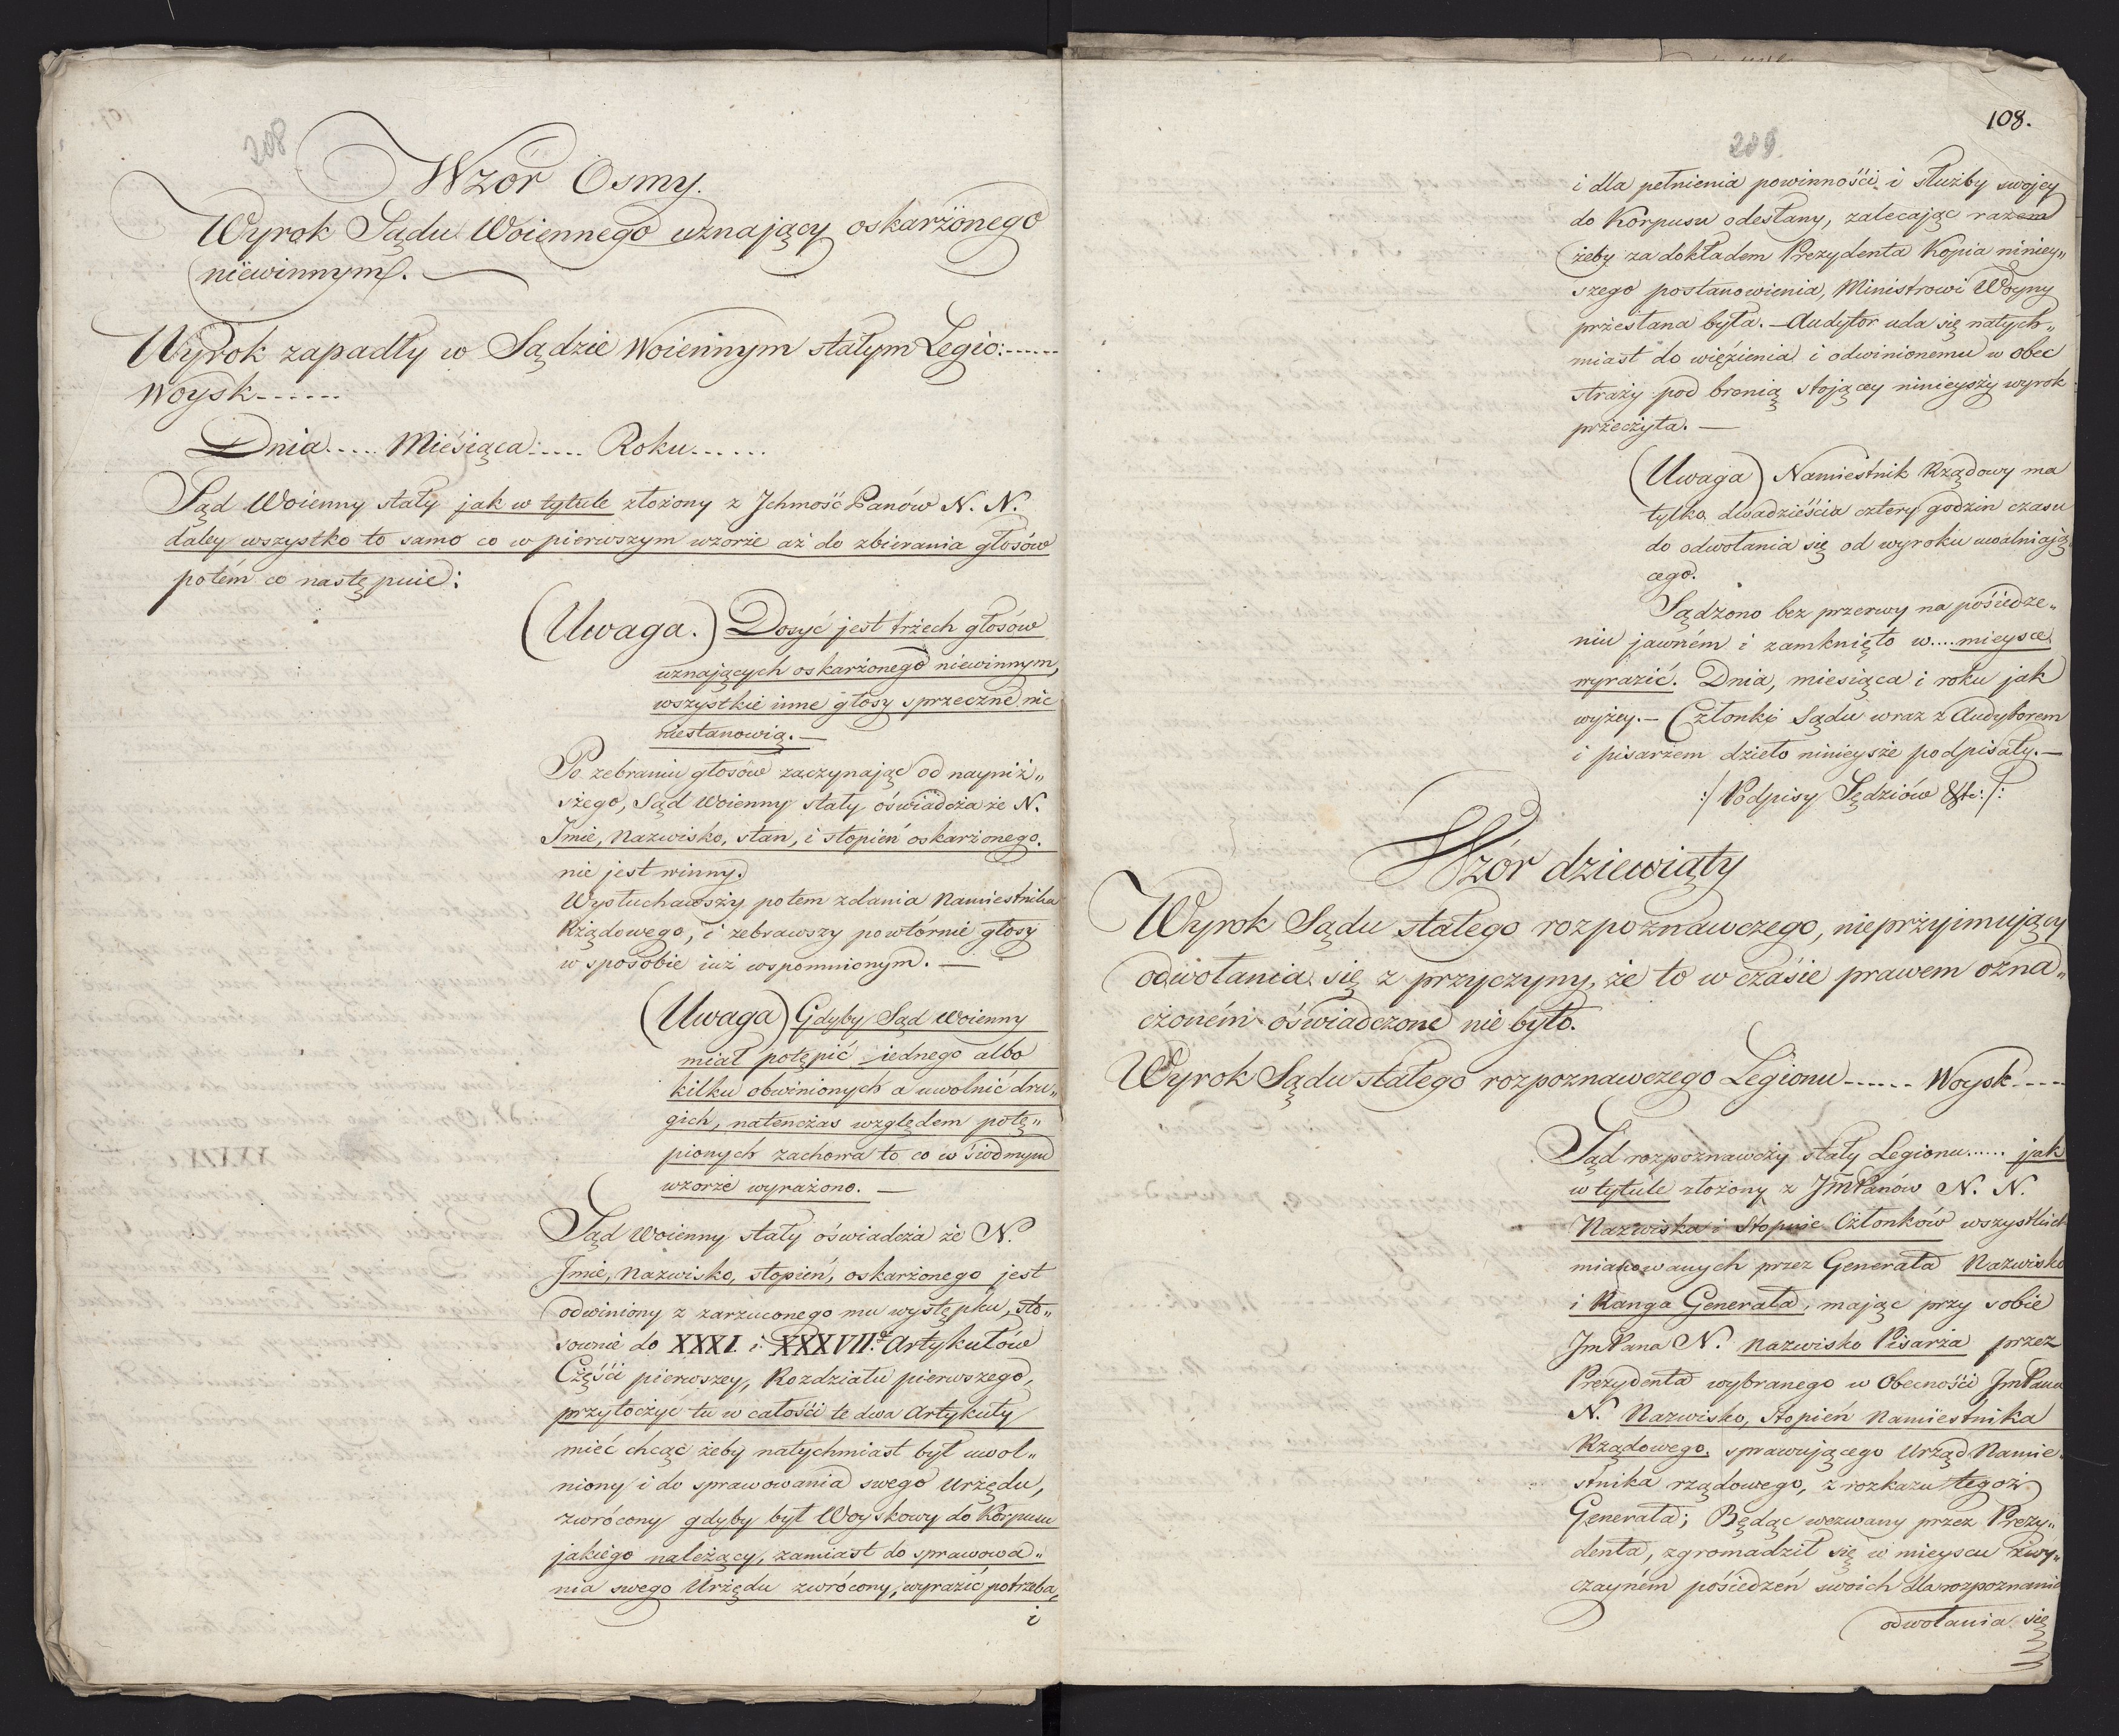 208
Wzór Osmy.
Wyrok Sądu Woiennego uznaiący oskarżonego
niewinnym.
Wyrok zapadły w Sądzie Woiennym stałym Legio:......
Woysk......
Dnia..... Miesiąca:..... Roku......
Sąd Woienny stały jak w tytule złożony z Jchmość Panów N. N.
daley wszystko to samo co w pierwszym wzorze aż do zbierania głosów
potém co następuie:
(Uwaga.) Dosyć jest trzech głosów
uznających oskarżonego niewinnym,
wszystkie inne głosy sprzeczne nic
niestanowią.—
Po zebraniu głosów zaczynając od nayniż„
szego, Sąd Woienny stały oświadcza że N.
Jmie, Nazwisko, stan, i stopień oskarżonego.
nie jest winny.
Wysłuchawszy potem zdania Namiestnika
Rządowego, i zebrawszy powtórnie głosy
w sposobie iuż wspomnionym. —
(Uwaga) Gdyby Sąd woienny
miał potępić iednego albo
kilku obwinionych a uwolnić dru„
gich, natenczas względem potę„
pionych zachowa to co w siódmym
wzorze wyrażono. —
Sąd Woienny stały oświadcza że N.
Jmie, Nazwisko, stopień, oskarżonego jest
odwiniony z zarzuconego mu występku, sto„
sownie do XXXI. i XXXVII. Artykułów
Części pierwszey, Rozdziału pierwszego,
przytoczyc tu w całości te dwa Artykuły
mieć chcąc żeby natychmiast był uwol„
niony i do sprawowania swego Urzędu,
zwrócony gdyby był Woyskowy do Korpusu
jakiego należący, zamiast do sprawowa„
nia swego Urzędu zwrócony, wyrazić potrzeba,
i
108.
209.
i dla pełnienia powinności i służby swojey
do Korpusu odesłany, zalecając razem
żeby za dokładem Prezydenta Kopia niniey„
szego postanowienia, Ministrowi Woyny
przesłana była. —Audytor uda się natych„
miast do więzienia i odwinionemu w obec
straży pod bronią stojącey ninieyszy wyrok
przeczyta. —
(Uwaga) Namiestnik Rządowy ma
tylko dwadzieścia cztery godzin czasu
do odwołania się od wyroku uwalniają„
cego.
Sądzono bez przerwy na pośiedze„
niu jawném i zamknięto w....mieysce
wyrazić. Dnia, miesiąca i roku jak
wyżey.— Członki Sądu wraz z Audytorem
i pisarzem dzieło ninieysze podpisały.—
:/ Podpisy Sędziów &tc: /:
Wzór dziewiąty
Wyrok Sądu stałego rozpoznawczego, nieprzyimujący
odwołania się z przyczyny, że to w czasie prawem ozna„
czoném oświadczone nie było.
Wyrok Sądu stałego rozpoznawczego Legionu...... Woysk.....
Sąd rozpoznawczy stały Legionu...... jak
w tytule złożony z JmPanów N. N.
Nazwiska i Stopnie Członków wszystkich
mianowanych przez Generała Nazwisko
i Ranga Generała, mając przy sobie
JmPana N. Nazwisko Pisarza przez
Prezydenta wybranego w Obecności JmPana
N. Nazwisko, Stopień Namiestnika
Rządowego, sprawującego Urząd Namie„
stnika rządowego, z rozkazu tegoż
Generała; Będąc wezwany przez Prezy„
denta, zgromadził się w mieyscu zwy„
czayném pośiedzeń swoich dla rozpoznania
odwołania się